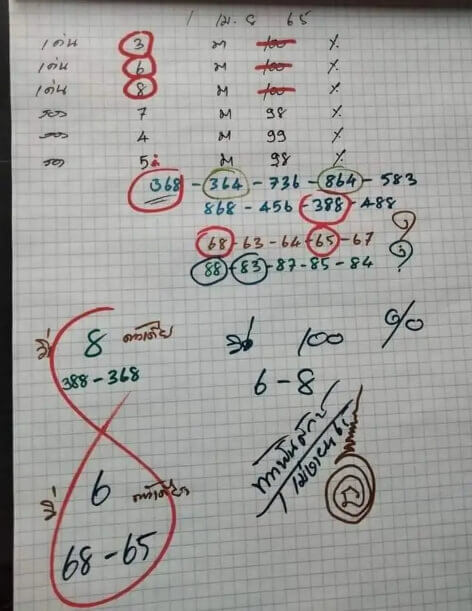 1 เม.ย 65
เด่น 3 ม 100 %
เด่น 6 ม 100 %
เด่น 8 ม 100 %
รอง 7 ม 98 %
รอง 4 ม 99 %
รอง 5 ม 98 %
368 - 364 - 736 - 864 - 583
868 - 456 - 388 - 488
68 - 63 - 64 - 65 - 67
88 - 83 - 87 - 85 - 84
8 ตัวเดียว
388 - 368
100 %
6 - 8
6 ตัวเดียว
68 - 65
1 เมษายน 65